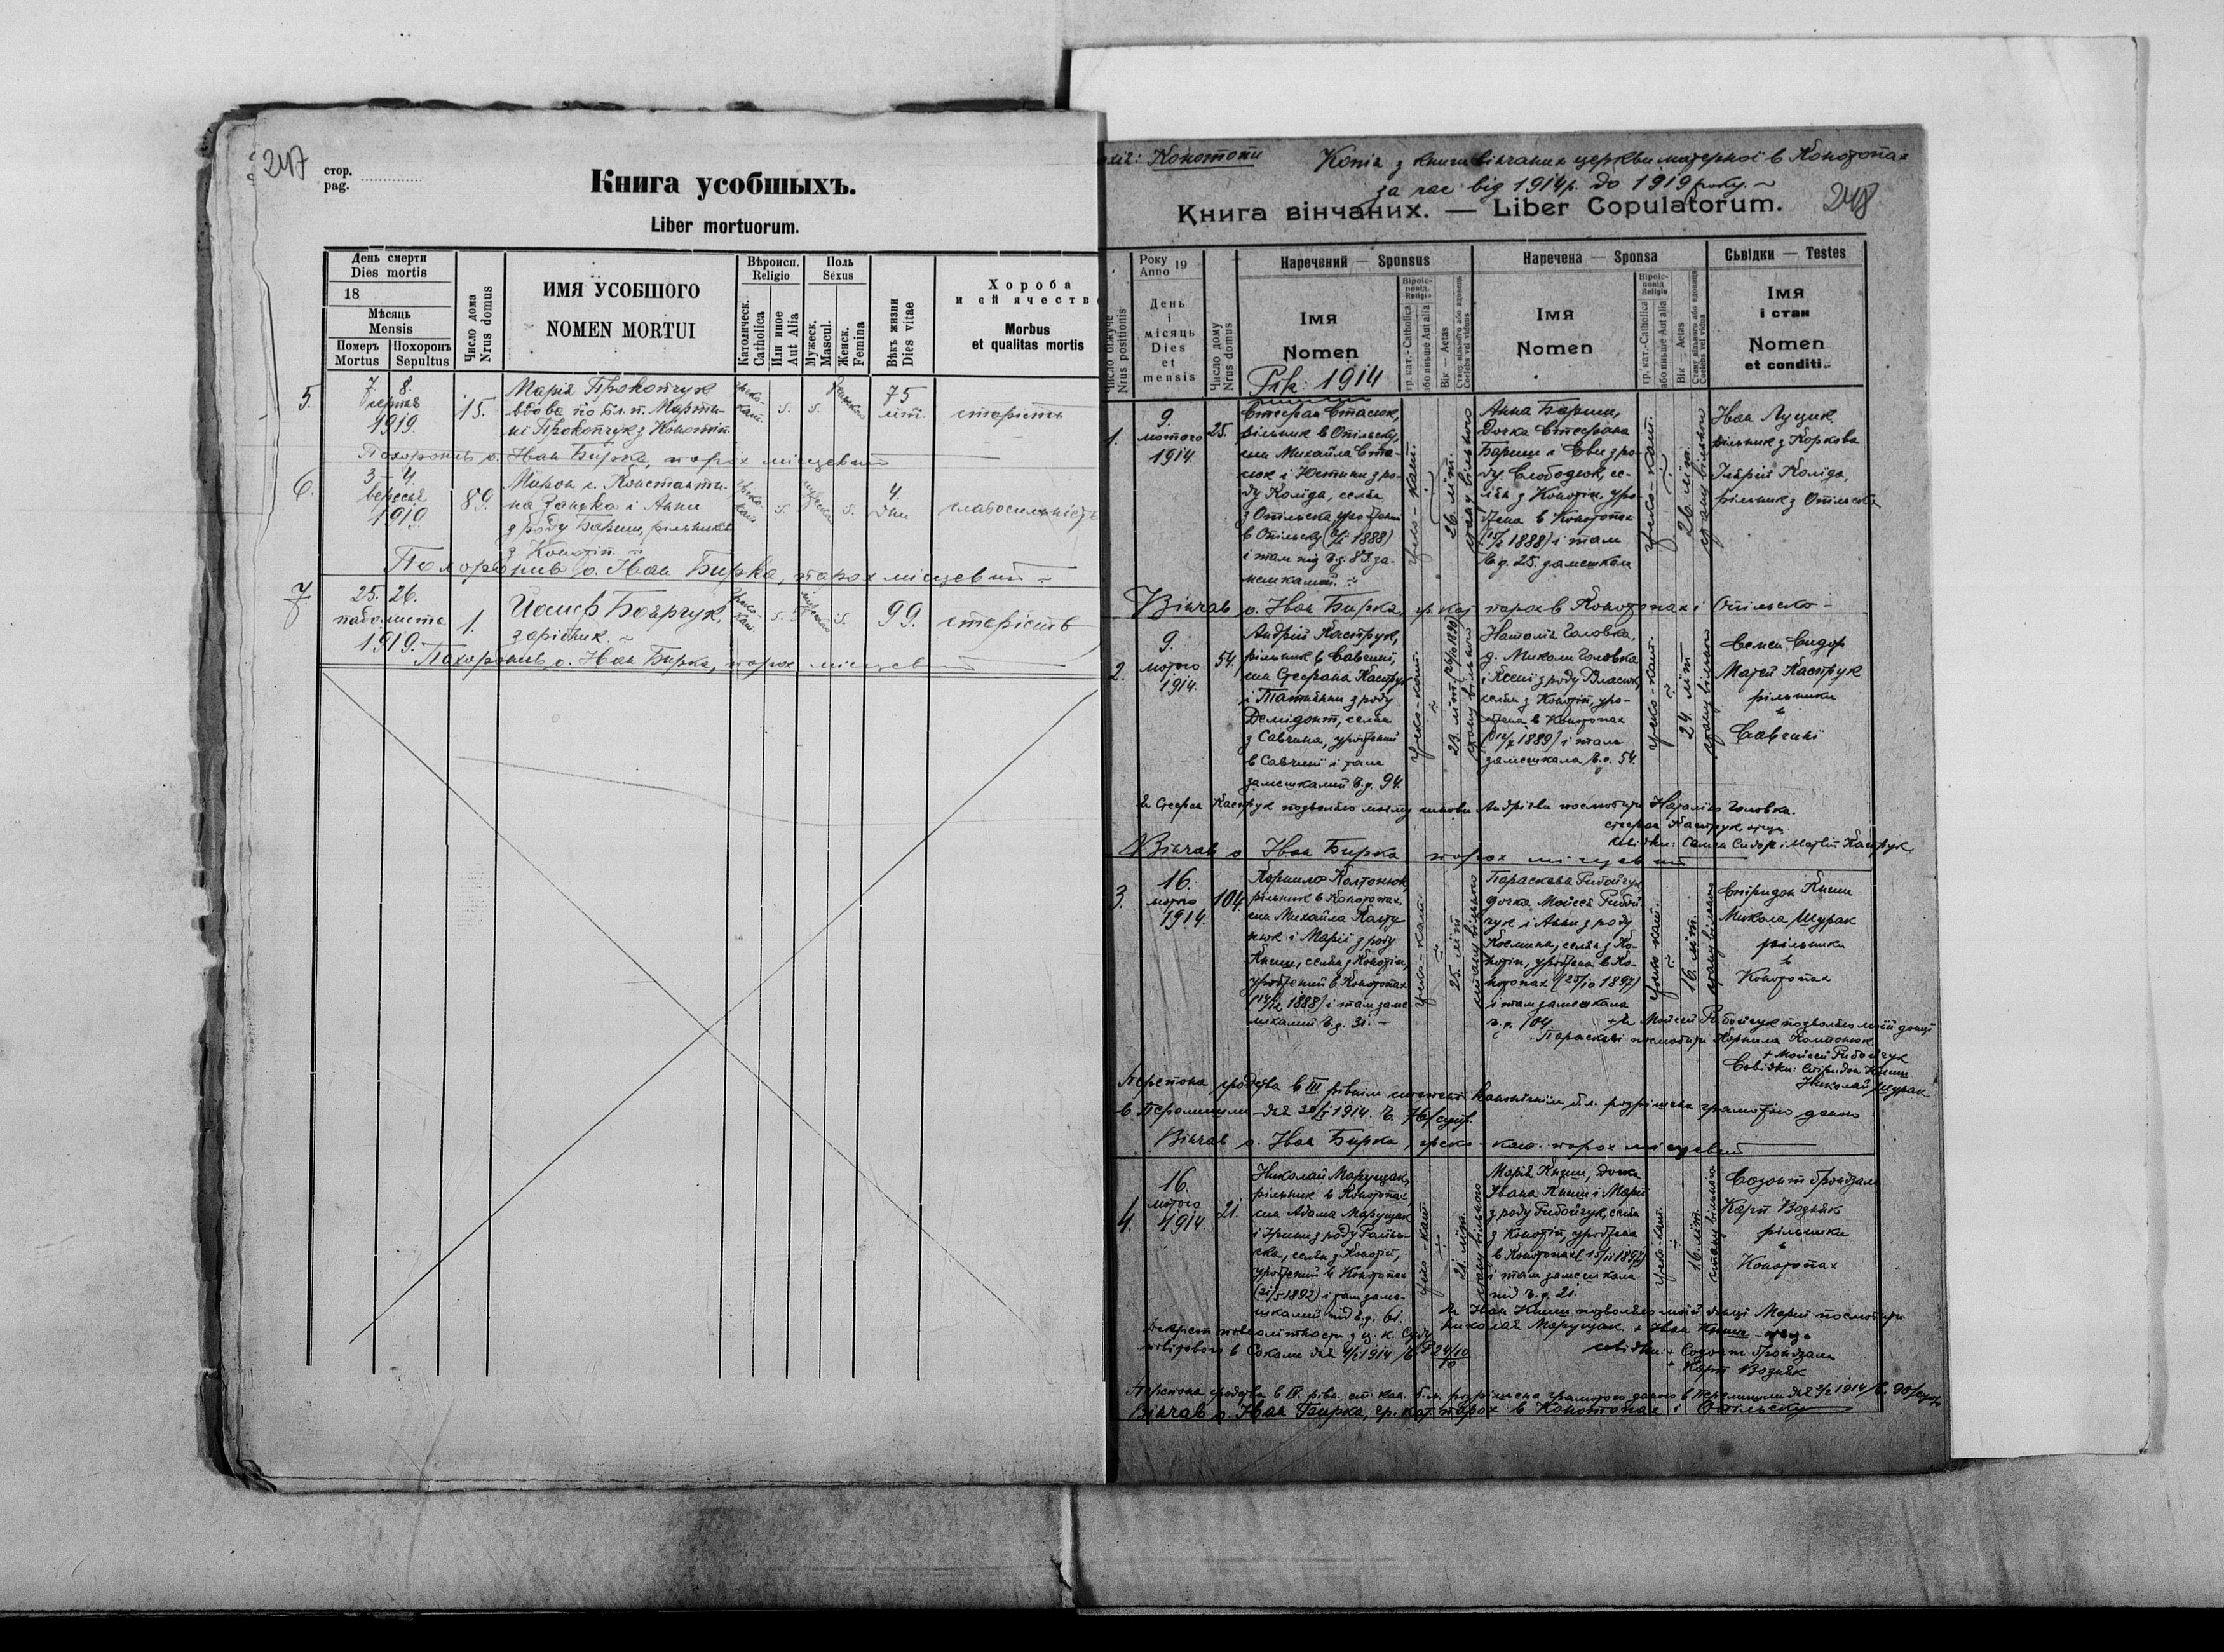 247
стор.
pag.
Книга усобшыхъ.
Liber mortuorum.
День смерти
Dies mortis
18
Мѣсяць
Mensis
Померъ
Mortus
Похоронъ
Sepultus
Число дома
Nrus domus
ИМЯ УСОБШОГО
NOMEN MORTUI
Вѣроисп.
Religio
Католическ.
Catholica
Или иное
Aut Alia
Поль
Sexus
Мужеск.
Mascul.
Женск.
Femina
Вѣкъ жизни
Dies vitae
Хороба
и ей ячеств
Morbus
et qualitas mortis
5.
7 8.
серпня
1919.
15.
Марія Прокопчук
вдова по бл. п. Марти-
ні Прокопчук з Конотіп.
греко-
кат.
s. s.
75
літ.
старість
Похоронив о. Иван Бирка, парох місцевий
6.
3 – 4.
вересня
1919
89.
Мирон с. Константи-
на Заноха і Анни
з роду Бариш, рільників
з Конотіп
греко-
кат.
s. s.
4.
дни
слабосильність
Похоронив о. Иван Бирка, парох місцевий
7
25. 26.
падолиста
1919.
1.
Йосиф Боярчук,
зарібник.
s. s.
99.
старість
Похоронив о. Иван Бирка, парох місцевий
Конотопи
Копія з книги вінчаних церкви матерної в Конотопах
за час від 1914р. до 1919 року.
248
Книга вінчаних. — Liber Copulatorum.
Число біжуче
Nrus positionis
Року
Anno 19
День
і
місяць
Dies
et
mensis
Число дому
Nrus domus
Наречений — Sponsus
Імя
Nomen
Рік: 1914
Віроіс-
повід.
Religio
гр. кат. - Catholica
або иньше Aut alia
Вік — Aetas
Стану вільного або вдовець
Coelebs vel viduus
Наречена — Sponsa
Імя
Nomen
Віроіс-
повід
Religio
гр. кат. - Catholica
або иньше Aut alia
Вік — Aetas
Coelebs vel vidua
Сьвідки — Testes
Імя
і стан
Nomen
et conditio
1.
9.
лютого
1914.
25.
Стефан Стасюк,
рільник в Опільску,
син Михайла Ста-
сюк і Юстини з ро-
ду Коліда, селян
з Опільска уроджений
в Опільску 1888)
і там під ч.д. 87 за-
мешкалий.
греко-кат.
26. літ.
стану вільного
Анна Бариш,
дочка Стефана
Бариш і Еви з ро-
ду Слободюк, се-
лян з Конотіп, уро-
джена в Конотопах
1888) і там
ч.д. 25. замешкала
греко-кат.
26. літ.
стану вільного
Иван Луцик
рільник з Коркова
Коліда,
рільник з Опільска
Вінчав о. Иван Бирка, гр. кат. парох в Конотопах і Опільско –
2.
9.
лютого
1914.
54.
Андрій Каспрук,
рільник в Савчині,
син Стефана Каспрук
і Татіянни з роду
селян
з Савчина, уроджений
в Савчині і там
замешкалий ч.д. 94.
греко-кат.
23. літ.
стану вільного
Наталія Головка,
д. Миколи Головка
і Ксені з роду Власюк,
селян з Конотіп, уро-
джена в Конотопах
1889) і там
замешкала ч.д. 54.
греко-кат.
24. літ
стану вільного
Семен Сидор
Матей Каспрук
рільники
в
Савчині
Я Стефан Каспрук позволяю мойому синови Андрієви пошлюбити Наталію Головка.
Стефан Каспрук отець
Сьвідки: Семен Сидор і Матвій Каспрук
Вінчав о Иван Бирка парох місцевий
3.
16.
лютого
1914.
104.
Корнило Колтонюк,
рільник в Конотопах,
син Михайла
нюк і Марії з роду
Книш, селян з Конотіп,
уроджений в Конотопах
1888) і там заме-
шкалий ч.д. 31. –
греко-кат.
25. літ
стану вільного
Параскева Рибойчук
дочка Мойсея Рибой-
чук і Анни з роду
селян з Ко-
нотіп, уроджена в Ко-
нотопах (25/10 1897)
і там замешкала
ч.д. 104.
греко кат.
16. літ.
стану вільного
Спіридон Книш
Микола Щурак
рільники
в
Конотопах
+ Я Мойсей Рибойчук позволяю моїй донці
Параскеві пошлюбити Корнила Колтонюк
+ Мойсей Рибойчук
Сьвідки: Спіридон Книш
Николай Щурак
Перепона родства в III рівнім степені бл. розрішена грамотою даною
в Перемишли дня 20/I 1914. Ч. 76/
Вінчав о. Иван Бирка, греко-кат. парох місцевий
4.
16.
лютого
1914.
21.
Николай Марущак,
рільник в Конотопах
син Адама Марущак
і Ирини з роду
селян з Конотіп,
уроджений в Конотопах
1892) і там заме-
шкалий під ч.д. 61.
греко-кат.
21. літ.
стану вільного
Марія Книш, дочка
Ивана Книш і Марії
з роду Рибойчук, селян
з Конотіп, уроджена
в Конотопах 1897)
і там замешкала
під ч.д. 21.
греко-кат.
16. літ
стану вільного
Созонт
Карп Возняк
рільники
в
Конотопах
Я Иван Книш позволяю моїй донці Марії пошлюбити
Николая Марущак. + Иван Книш – отець
Декрет повнолітности з ц. к. Суду
повітового в Сокали дня 1914
сьвідки: + Созонт
+ Карп Возняк
Перепона родства в IV. рівн. ст. кан. бл. розрішена грамотою даною в Перемишли дня 1914
Вінчав о. Иван Бирка, гр. кат. парох в Конотопах і Опільску